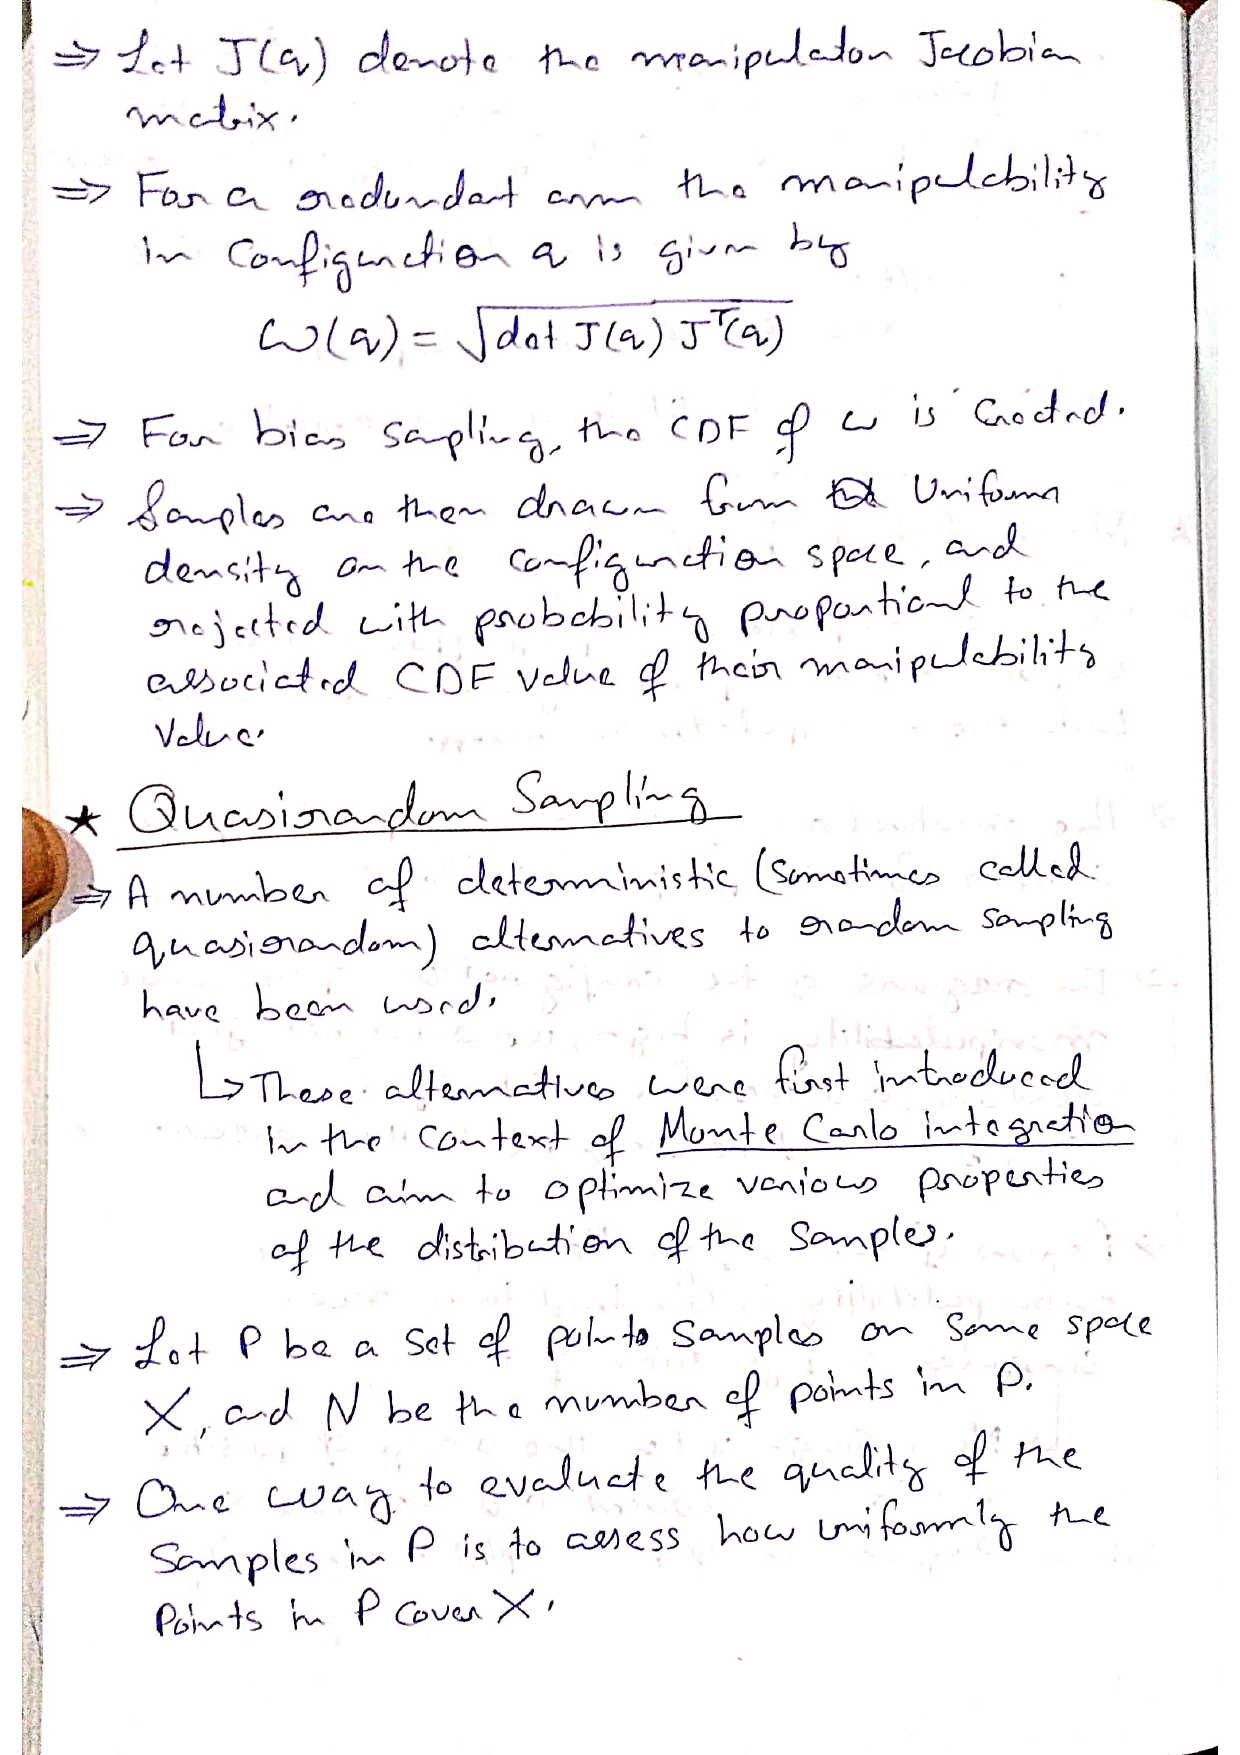 ⇒ Let J(q) denote the manipulator Jacobian
matrix.
⇒ For a redundant arm the manipulability
in Configuration q is given by
ω(q) = √det J(q) Jᵀ(q)
⇒ For bias sampling, the CDF of ω is Created.
⇒ Samples are then drawn from Uniform
density on the configuration space, and
rejected with probability proportional to the
associated CDF value of their manipulability
Value.
★ Quasirandom Sampling
⇒ A number of deterministic (Sometimes called
quasirandom) alternatives to random sampling
have been used.
↳ These alternatives were first introduced
in the context of Monte Carlo integration
and aim to optimize various properties
of the distribution of the Samples.
⇒ Let P be a set of points Samples on Some space
X, and N be the number of points in P.
⇒ One way to evaluate the quality of the
Samples in P is to assess how uniformly the
Points in P cover X.